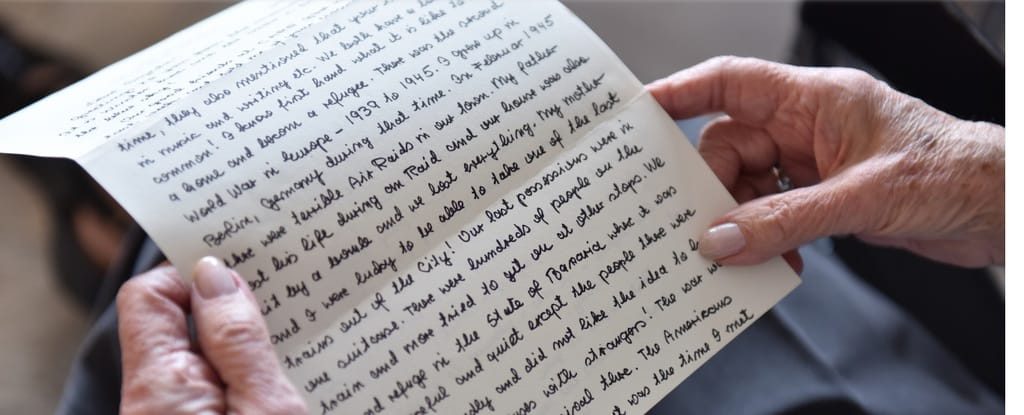 time, they also mentioned that your
in music and writing etc. We both have a lot
common! I know first hand what it is like to
a home and becom a refugee. There was the second
World War in Europe – 1939 to 1945. I grew up in
Berlin, Germany during that time. In Februar 1945
there were terrible Air Raids in our town. My father
lost his life during an Raid and our house was also
hit by a bomb and we lost everything. My mother
and I were lucky to be able to take one of the last
trains out of the City! Our last possessions were in
one suitcase. There were hundreds of people on the
train and more tried to get on at other stops. We
refuge in the State of Bavaria where it was
and quiet except the people there were
and did not like the idea to
with strangers! The war
there. The Americans
was the time I met